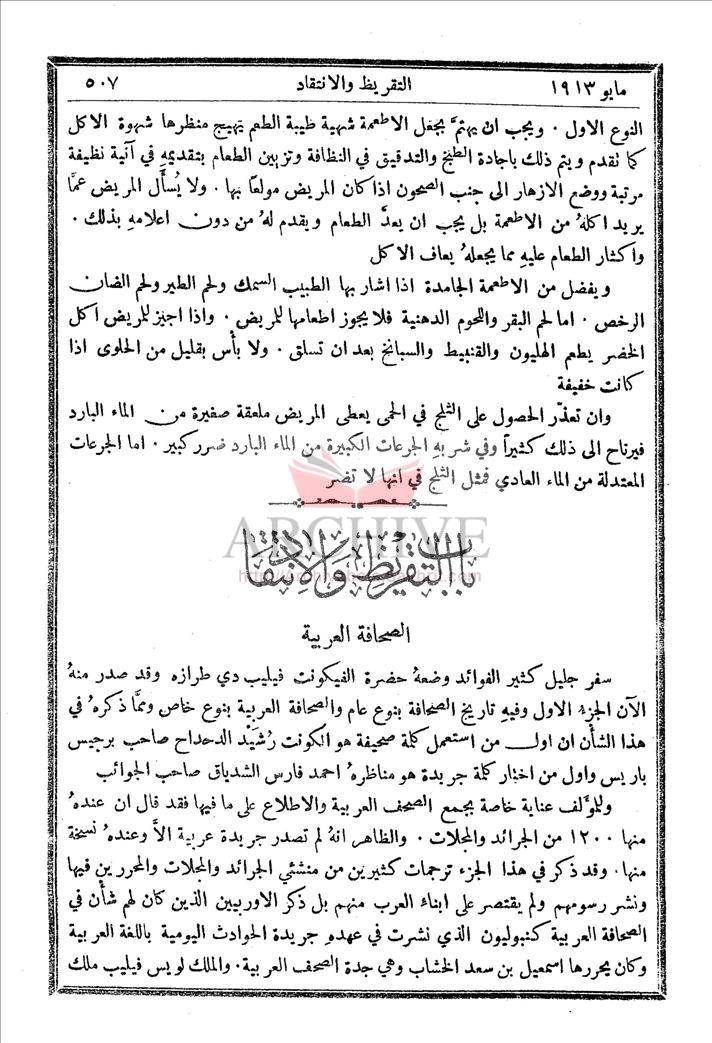 مايو ١٩١٣
التقريظ والانتقاد
٥٠٧
النوع الاول . ويجب ان يهتمَّ بجعل الاطعمة شهية طيبة الطعم يهيج منظرها شهوة الاكل
كما تقدم ويتم ذلك باجادة الطبخ والتدقيق في النظافة وتزبين الطعام بتقديمهِ في آنية نظيفة
مرتبة ووضع الازهار الى جنب الصحون اذا كان المريض مولعاً بها . ولا يُسأَل المريض عمَّا
يريد اكلهُ من الاطعمة بل يجب ان يعدَّ الطعام ويقدم لهُ من دون اعلامهِ بذلك .
واكثار الطعام عليهِ مما يجعلهُ يعاف الاكل
ويفضل من الاطعمة الجامدة اذا اشار بها الطبيب السمك ولحم الطير ولحم الضان
الرخص . اما لحم البقر واللحوم الدهنية فلا يجوز اطعامها للمريض . واذا اجيز للمريض اكل
الخضر يطعم الهليون والقنبيط والسبانخ بعد ان تسلق . ولا بأس بقليل من الحلوى اذا
كانت خفيفة
وان تعذّر الحصول على الثلج في الحمى يعطى المريض ملعقة صغيرة من الماء البارد
فيرتاح الى ذلك كثيراً وفي شربهِ الجرعات الكبيرة من الماء البارد ضرر كبير . اما الجرعات
المعتدلة من الماء العادي فمثل الثلج في انها لا تضر
ARCHIVE
باب التقريظ والانتقاد
الصحافة العربية
سفر جليل كثير الفوائد وضعهُ حضرة الفيكونت فيليب دي طرازه وقد صدر منهُ
الآن الجزء الاول وفيهِ تاريخ الصحافة بنوع عام والصحافة العربية بنوع خاص وممَّا ذكرهُ في
هذا الشأن ان اول من استعمل كلمة صحيفة هو الكونت رُشَيْد الدحداح صاحب برجيس
باريس واول من اختار كلمة جريدة هو مناظرهُ احمد فارس الشدياق صاحب الجوائب
وللمؤلف عناية خاصة بجمع الصحف العربية والاطلاع على ما فيها فقد قال ان عندهُ
منها ١٢٠٠ من الجرائد والمجلات . والظاهر انهُ لم تصدر جريدة عربية الاَّ وعندهُ نسخة
منها . وقد ذكر في هذا الجزء ترجمات كثيرين من منشئي الجرائد والمجلات والمحررين فيها
ونشر رسومهم ولم يقتصر على ابناء العرب منهم بل ذكر الاوربيين الذين كان لهم شأن في
الصحافة العربية كنبوليون الذي نشرت في عهدهِ جريدة الحوادث اليومية باللغة العربية
وكان يحررها اسمعيل بن سعد الخشاب وهي جدة الصحف العربية . والملك لويس فيليب ملك